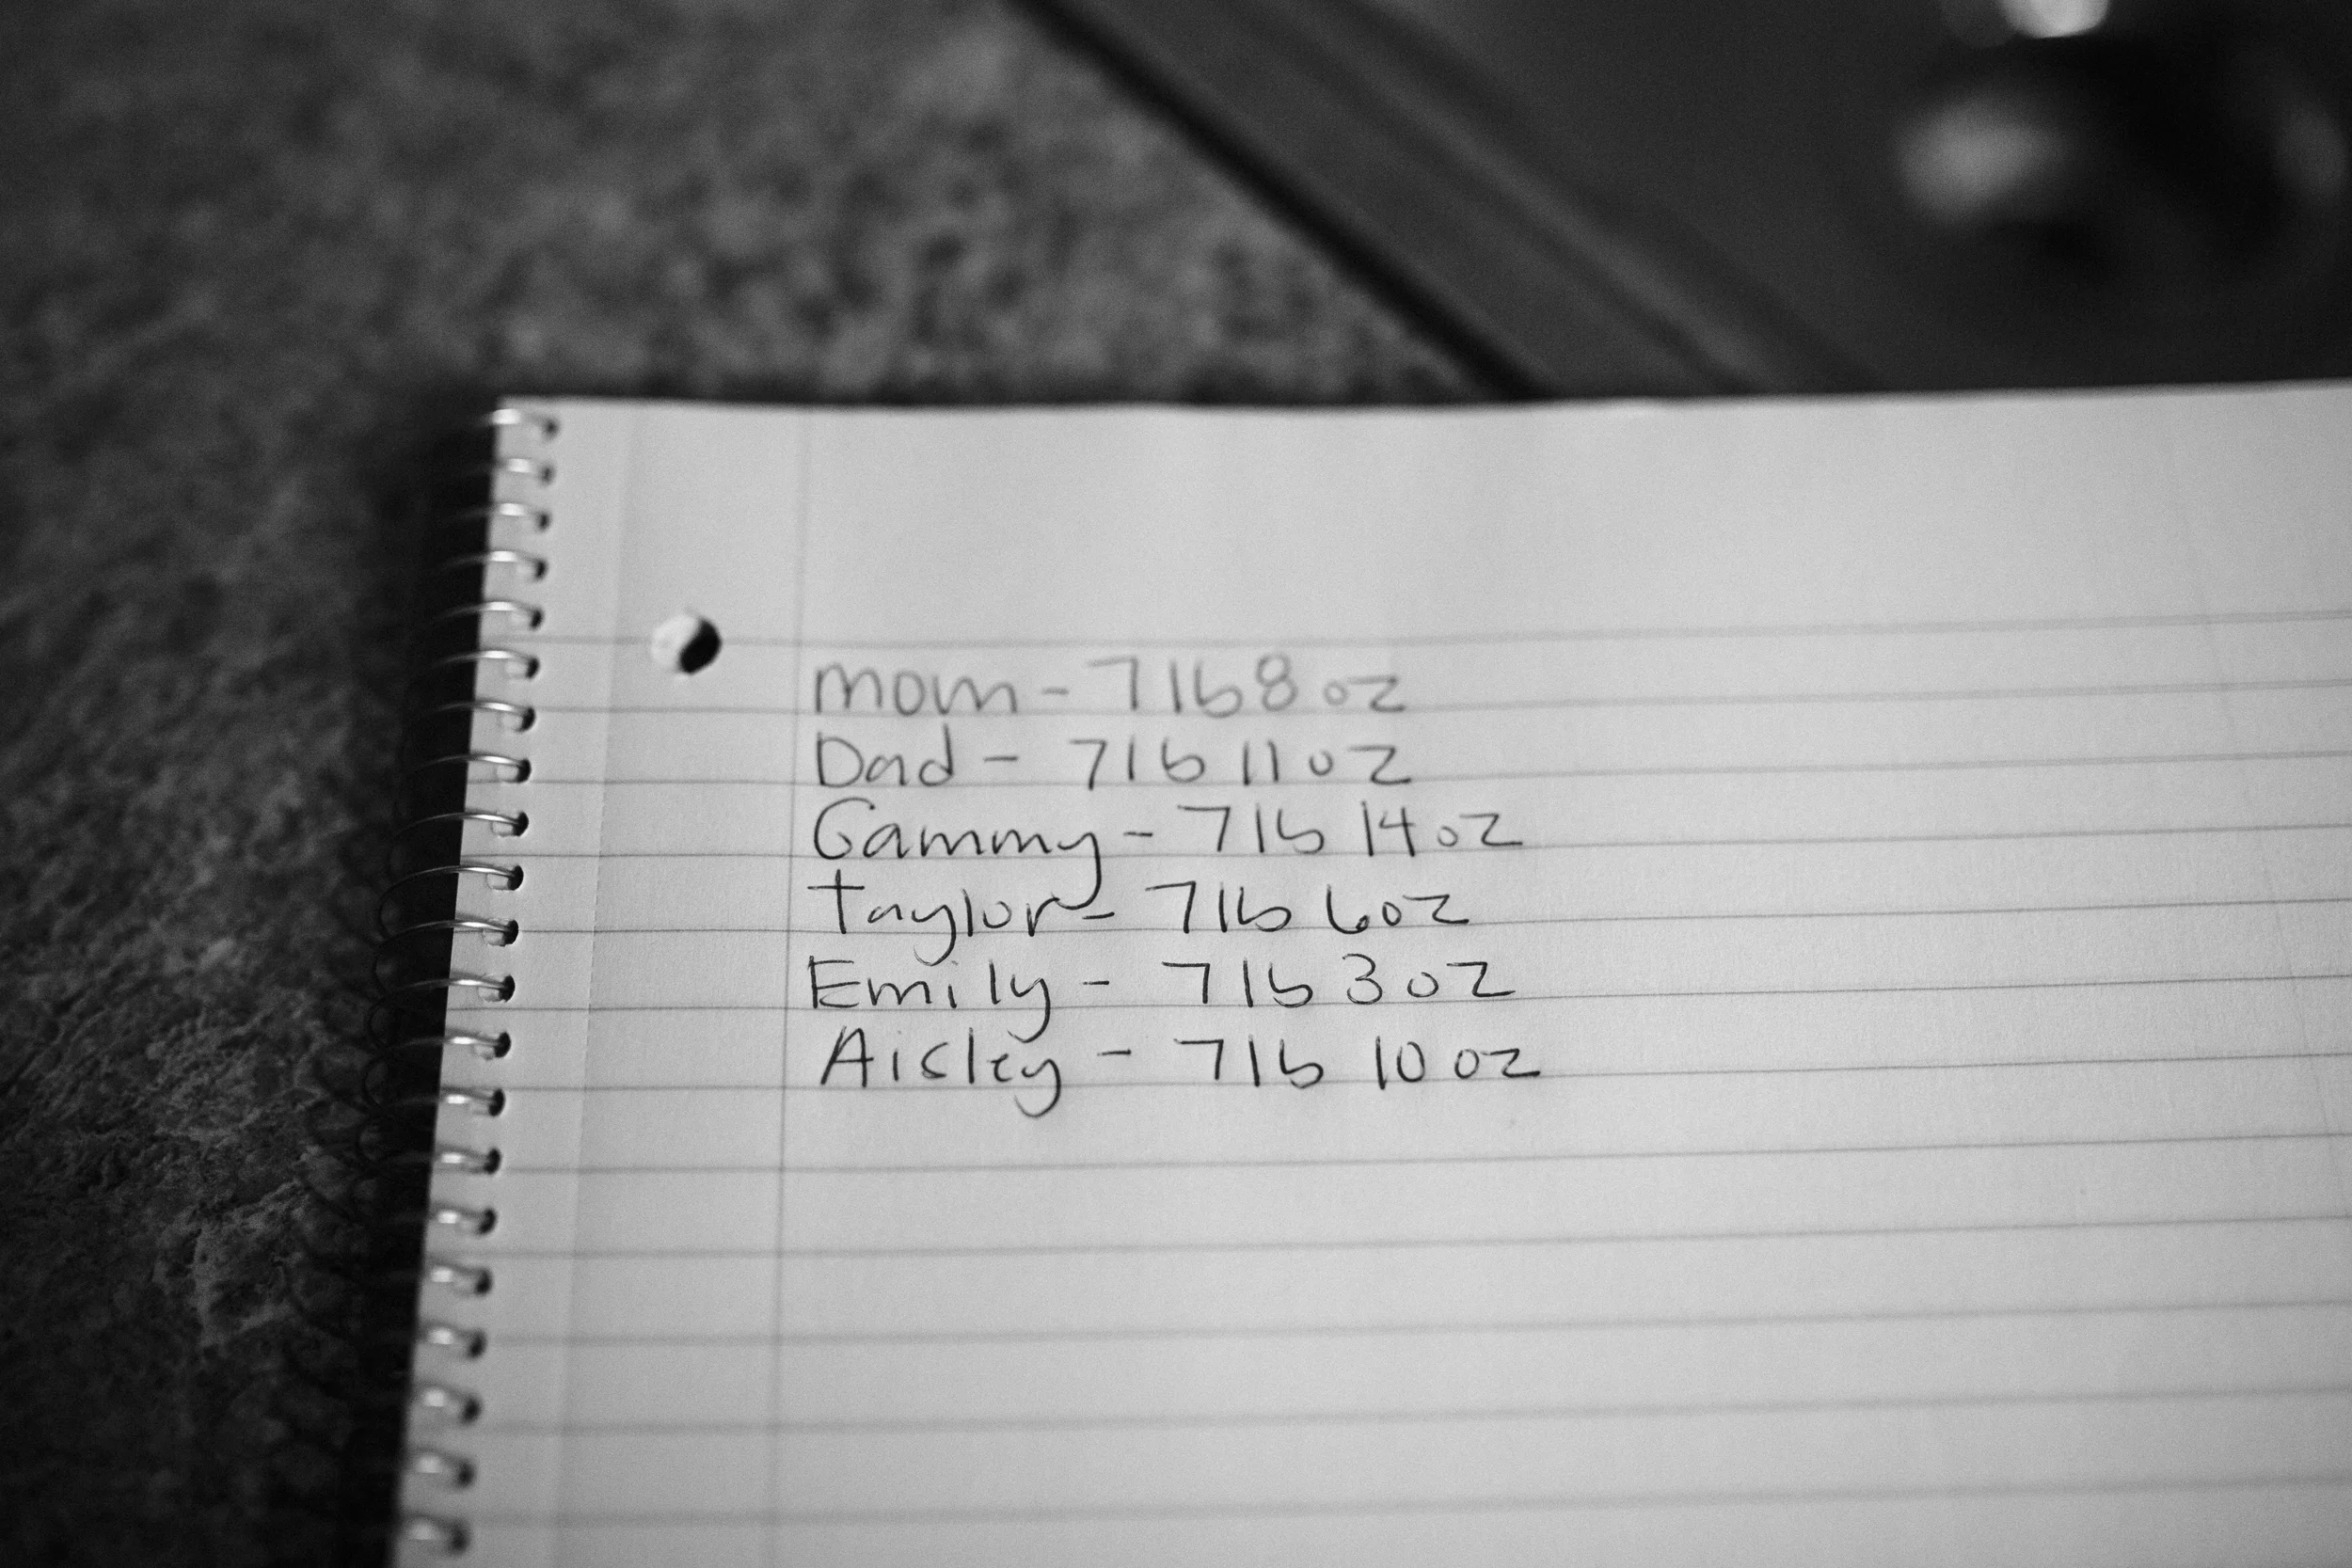 mom - 7lb 8oz
Dad - 7lb 11oz
Gammy - 7lb 14oz
Taylor - 7lb 6oz
Emily - 7lb 3oz
Aisley - 7lb 10oz